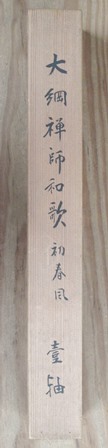 大綱禅師和歌 初春風 壹軸